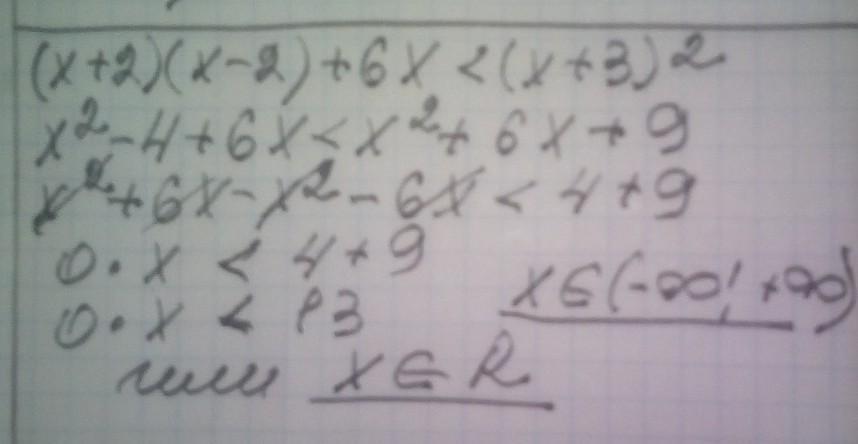 (x+2)(x-2)+6x<(x+3)2
x²-4+6x<x²+6x+9
x²+6x-x²-6x<4+9
0·x<4+9
0·x<13
x∈(-∞; +∞)
или x∈R